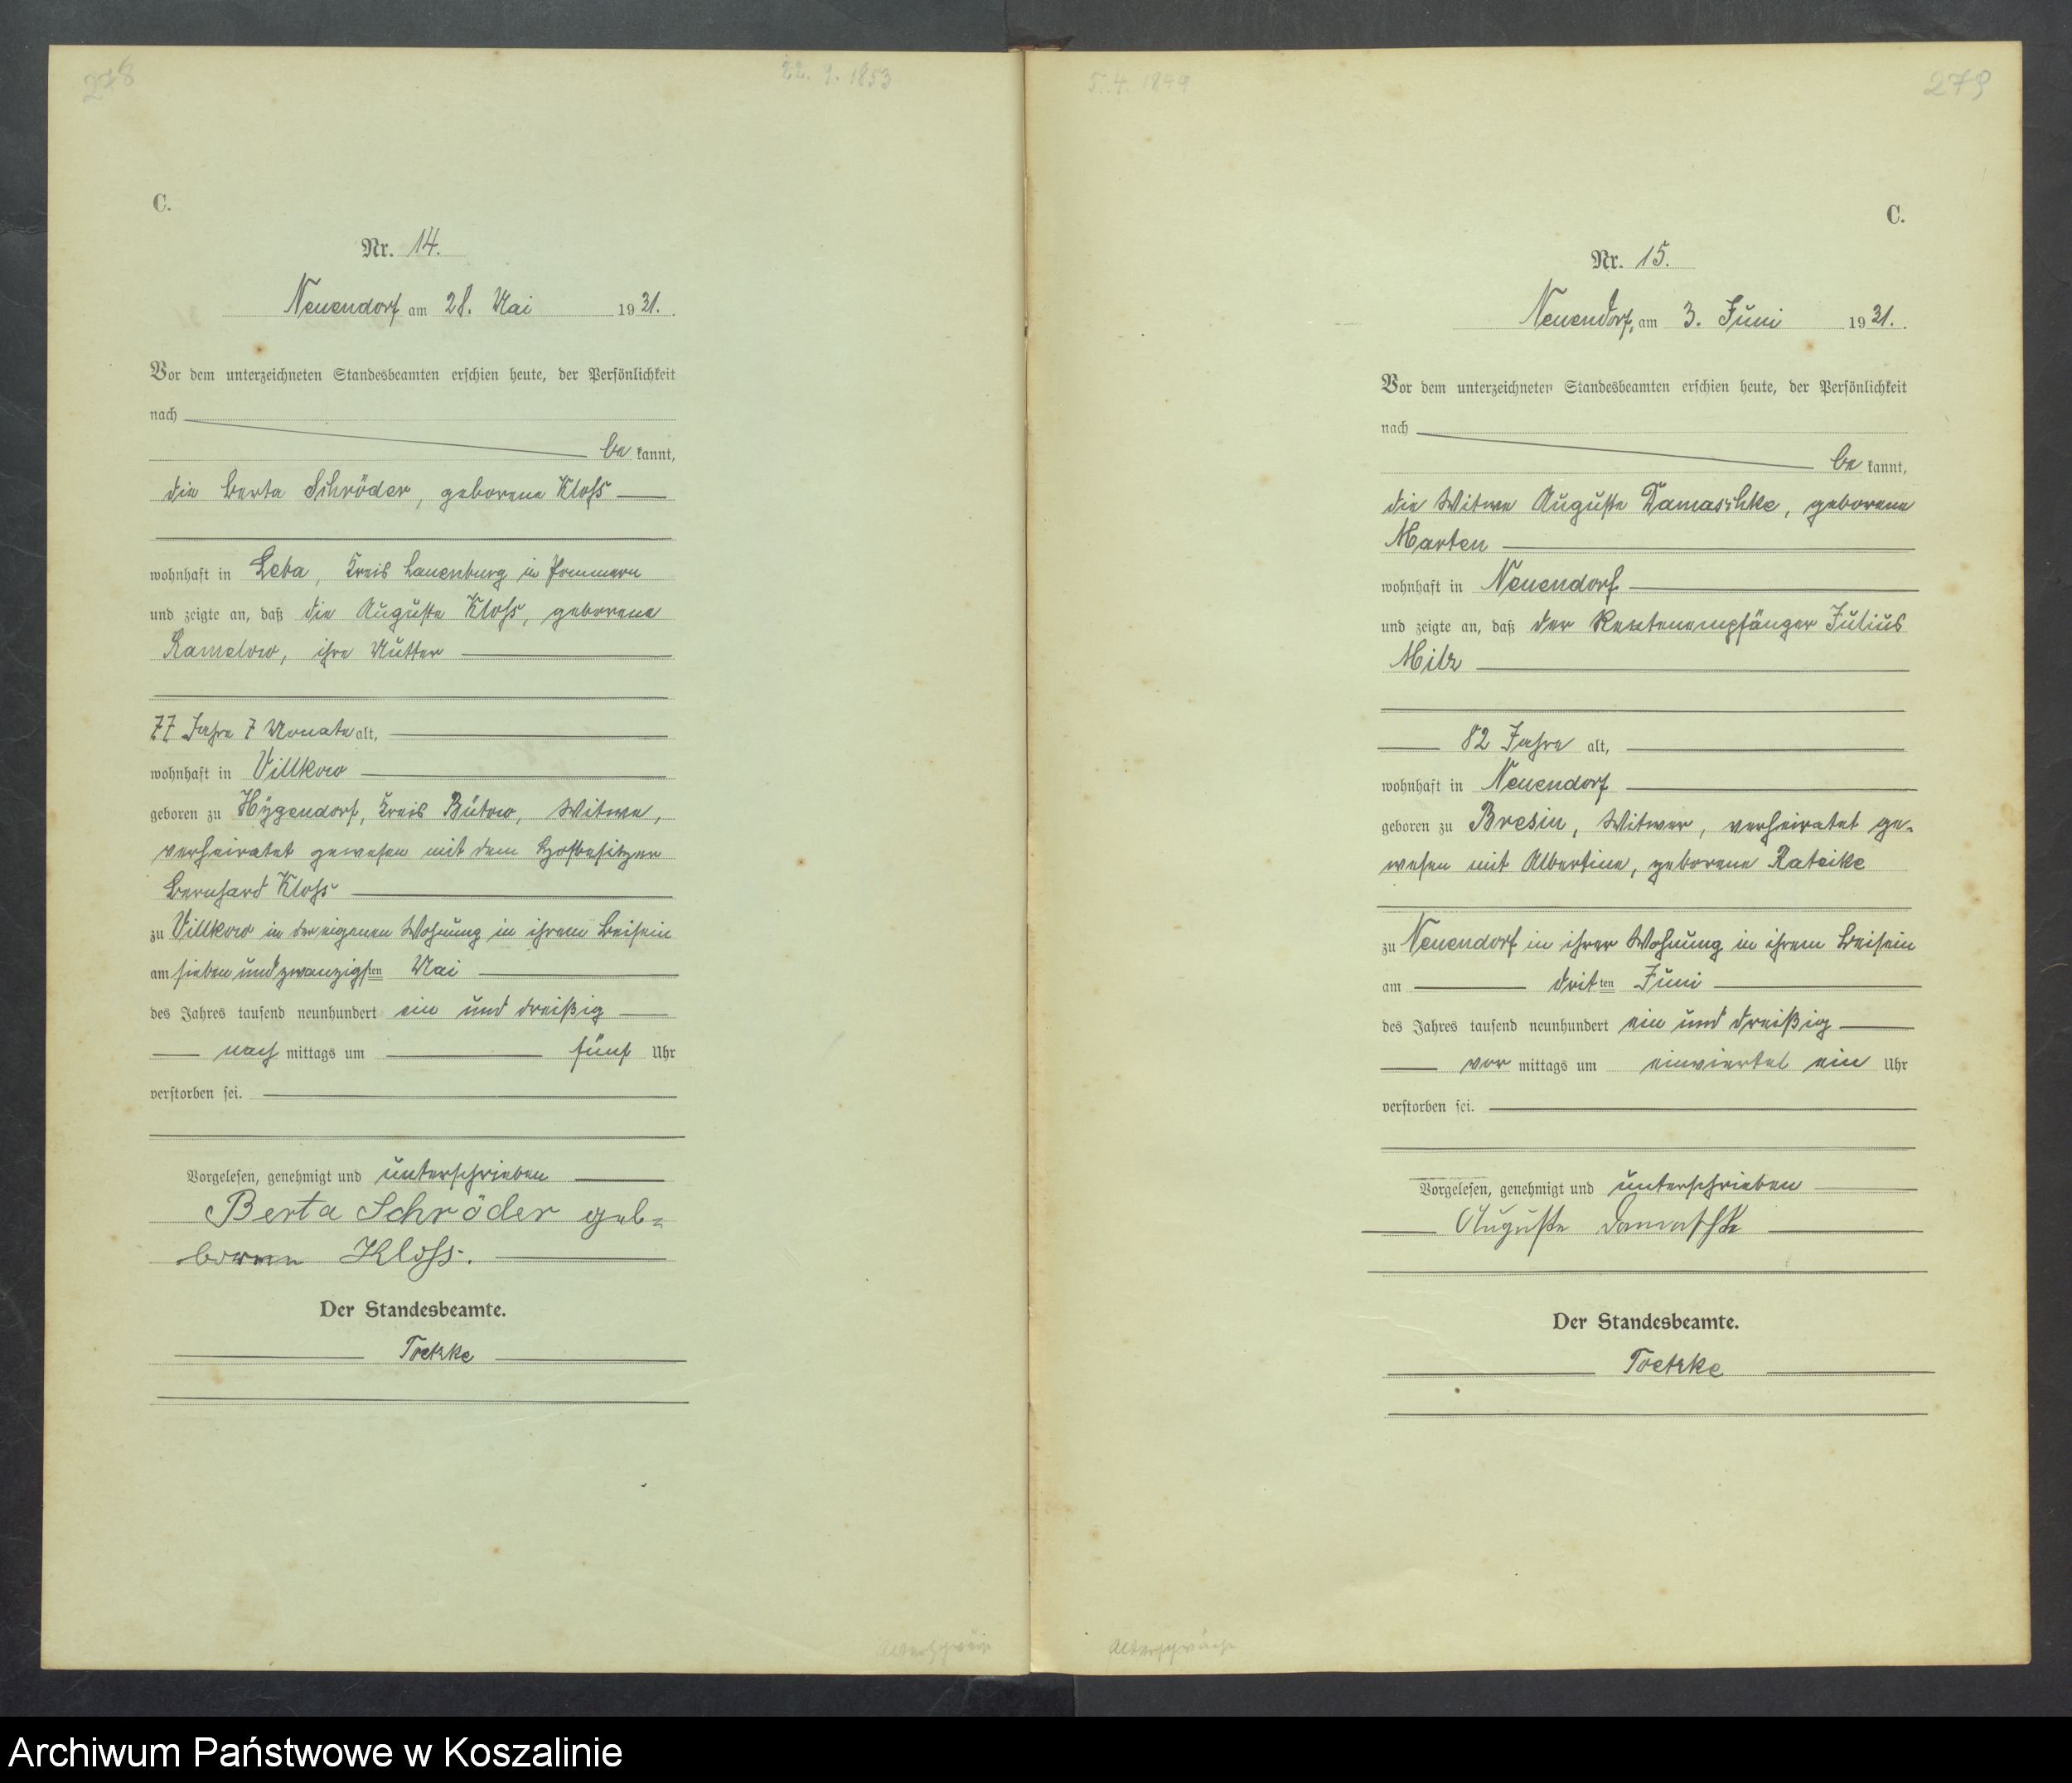 278
22. 9. 1853
C.
Nr. 14.
Neuendorf am 28. Mai 1931.
Vor dem unterzeichneten Standesbeamten erschien heute, der Persönlichkeit
nach
be kannt,
die Berta Schröder, geborene Kloss
wohnhaft in Leba, Kreis Lauenburg in Pommern
und zeigte an, daß die Auguste Kloss, geborene
Ramelow, ihre Mutter
77 Jahre 7 Monate alt,
wohnhaft in Villkow
geboren zu Hygendorf, Kreis Bütow, Witwe,
verheiratet gewesen mit dem Hofbesitzer
Bernhard Kloss
zu Villkow in der eigenen Wohnung in ihrem Beisein
am sieben und zwanzigsten Mai
des Jahres tausend neunhundert ein und dreißig
nach mittags um fünf Uhr
verstorben sei.
Vorgelesen, genehmigt und unterschrieben
Berta Schröder geb=
borene Kloss.
Der Standesbeamte.
Toetzke
5. 4. 1849
279
C.
Nr. 15.
Neuendorf, am 3. Juni 1931.
Vor dem unterzeichneten Standesbeamten erschien heute, der Persönlichkeit
nach
be kannt,
die Witwe Auguste Damaschke, geborene
Marten
wohnhaft in Neuendorf
und zeigte an, daß der Rentenempfänger Julius
Milz
82 Jahre alt,
wohnhaft in Neuendorf
geboren zu Bresin, Witwer, verheiratet ge-
wesen mit Albertine, geborene Rateike
zu Neuendorf in ihrer Wohnung in ihrem Beisein
am dritten Juni
des Jahres tausend neunhundert ein und dreißig
vor mittags um einviertel ein Uhr
verstorben sei.
Vorgelesen, genehmigt und unterschrieben
Auguste Damaschke
Der Standesbeamte.
Toetzke
Archiwum Państwowe w Koszalinie